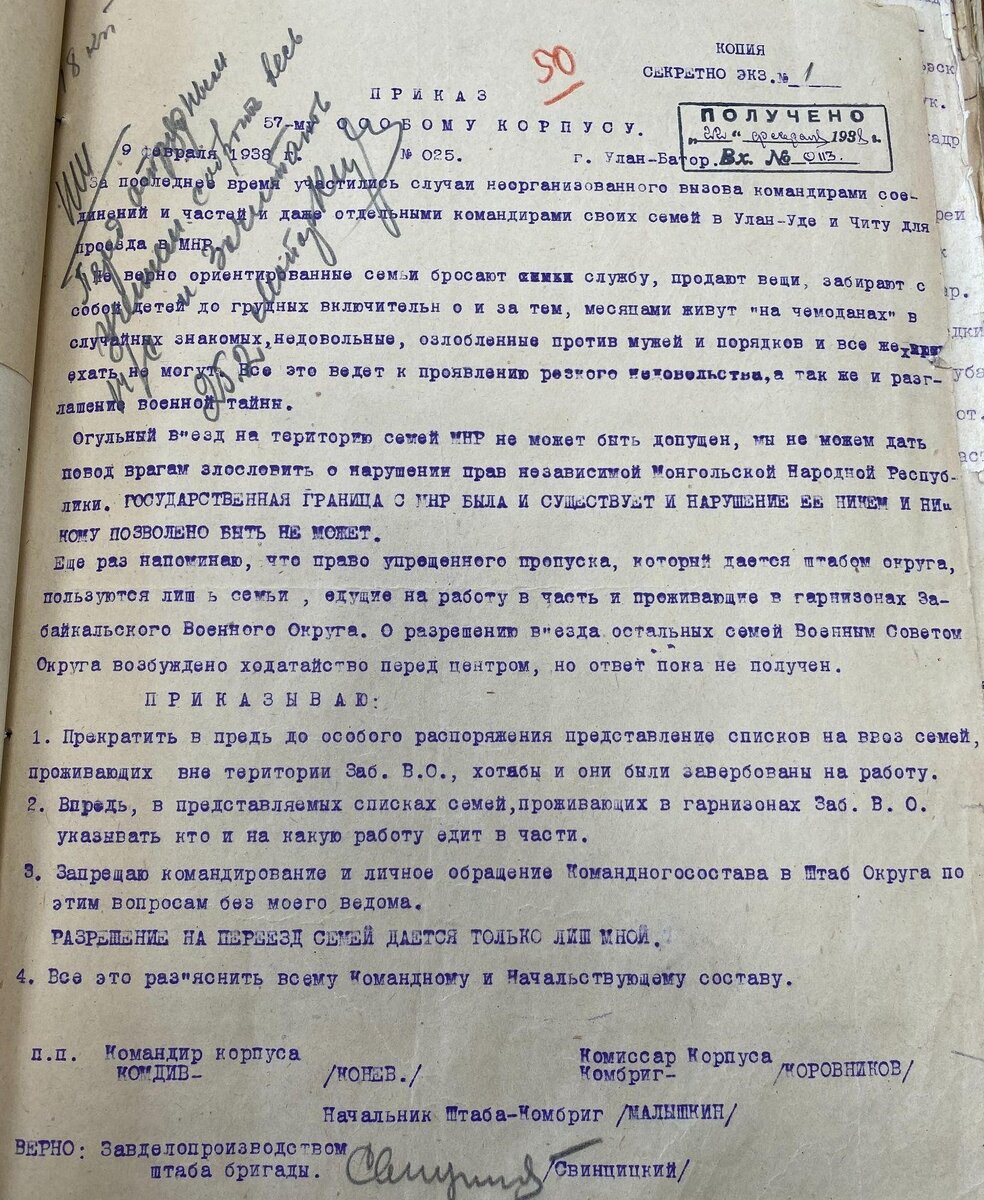 КОПИЯ
СЕКРЕТНО ЭКЗ.№ 1
50
ПРИКАЗ
57-му ОСОБОМУ КОРПУСУ.
ПОЛУЧЕНО
"22" февраля 1938 г.
Вх. № 0113.
9 февраля 1938 г. № 025. г. Улан-Батор.
За последнее время участились случаи неорганизованного вызова командирами сое-
динений и частей и даже отдельными командирами своих семей в Улан-Уде и Читу для
проезда в МНР
Не верно ориентированные семьи бросают службу, продают вещи, забирают с
собой детей до грудных включительн о и за тем, месяцами живут "на чемоданах" в
случайных знакомых,недовольные, озлобленные против мужей и порядков и все же
ехать не могут. Все это ведет к проявлению резкого недовольства,а так же и разг-
лашение военной тайны.
Огульный в"езд на територию семей МНР не может быть допущен, мы не можем дать
повод врагам злословить о нарушении прав независимой Монгольской Народной Респуб-
лики. ГОСУДАРСТВЕННАЯ ГРАНИЦА С МНР БЫЛА И СУЩЕСТВУЕТ И НАРУШЕНИЕ ЕЕ НИЧЕМ И НИ-
КОМУ ПОЗВОЛЕНО БЫТЬ НЕ МОЖЕТ.
Еще раз напоминаю, что право упрещенного пропуска, который дается штабом округа,
пользуются лиш ь семьи , едущие на работу в часть и проживающие в гарнизонах За-
байкальского Военного Округа. О разрешению в"езда остальных семей Военным Советом
Округа возбуждено ходатайство перед центром, но ответ пока не получен.
ПРИКАЗЫВАЮ:
1. Прекратить в предь до особого распоряжения представление списков на ввоз семей,
проживающих вне територии Заб. В.О., хотабы и они были завербованы на работу.
2. Впредь, в представляемых списках семей,проживающих в гарнизонах Заб. В. О.
указывать кто и на какую работу едит в части.
3. Запрещаю командирование и личное обращение Командногосостава в Штаб Округа по
этим вопросам без моего ведома.
РАЗРЕШЕНИЕ НА ПЕРЕЕЗД СЕМЕЙ ДАЕТСЯ ТОЛЬКО ЛИШ МНОЙ.
4. Все это раз"яснить всему Командному и Начальствующему составу.
п.п. Командир корпуса Комиссар Корпуса
КОМДИВ- /КОНЕВ./ Комбриг- /КОРОВНИКОВ/
Начальник Штаба-Комбриг /МАЛЫШКИН/
ВЕРНО: Завделопроизводством
штаба бригады. /Свинцицкий/